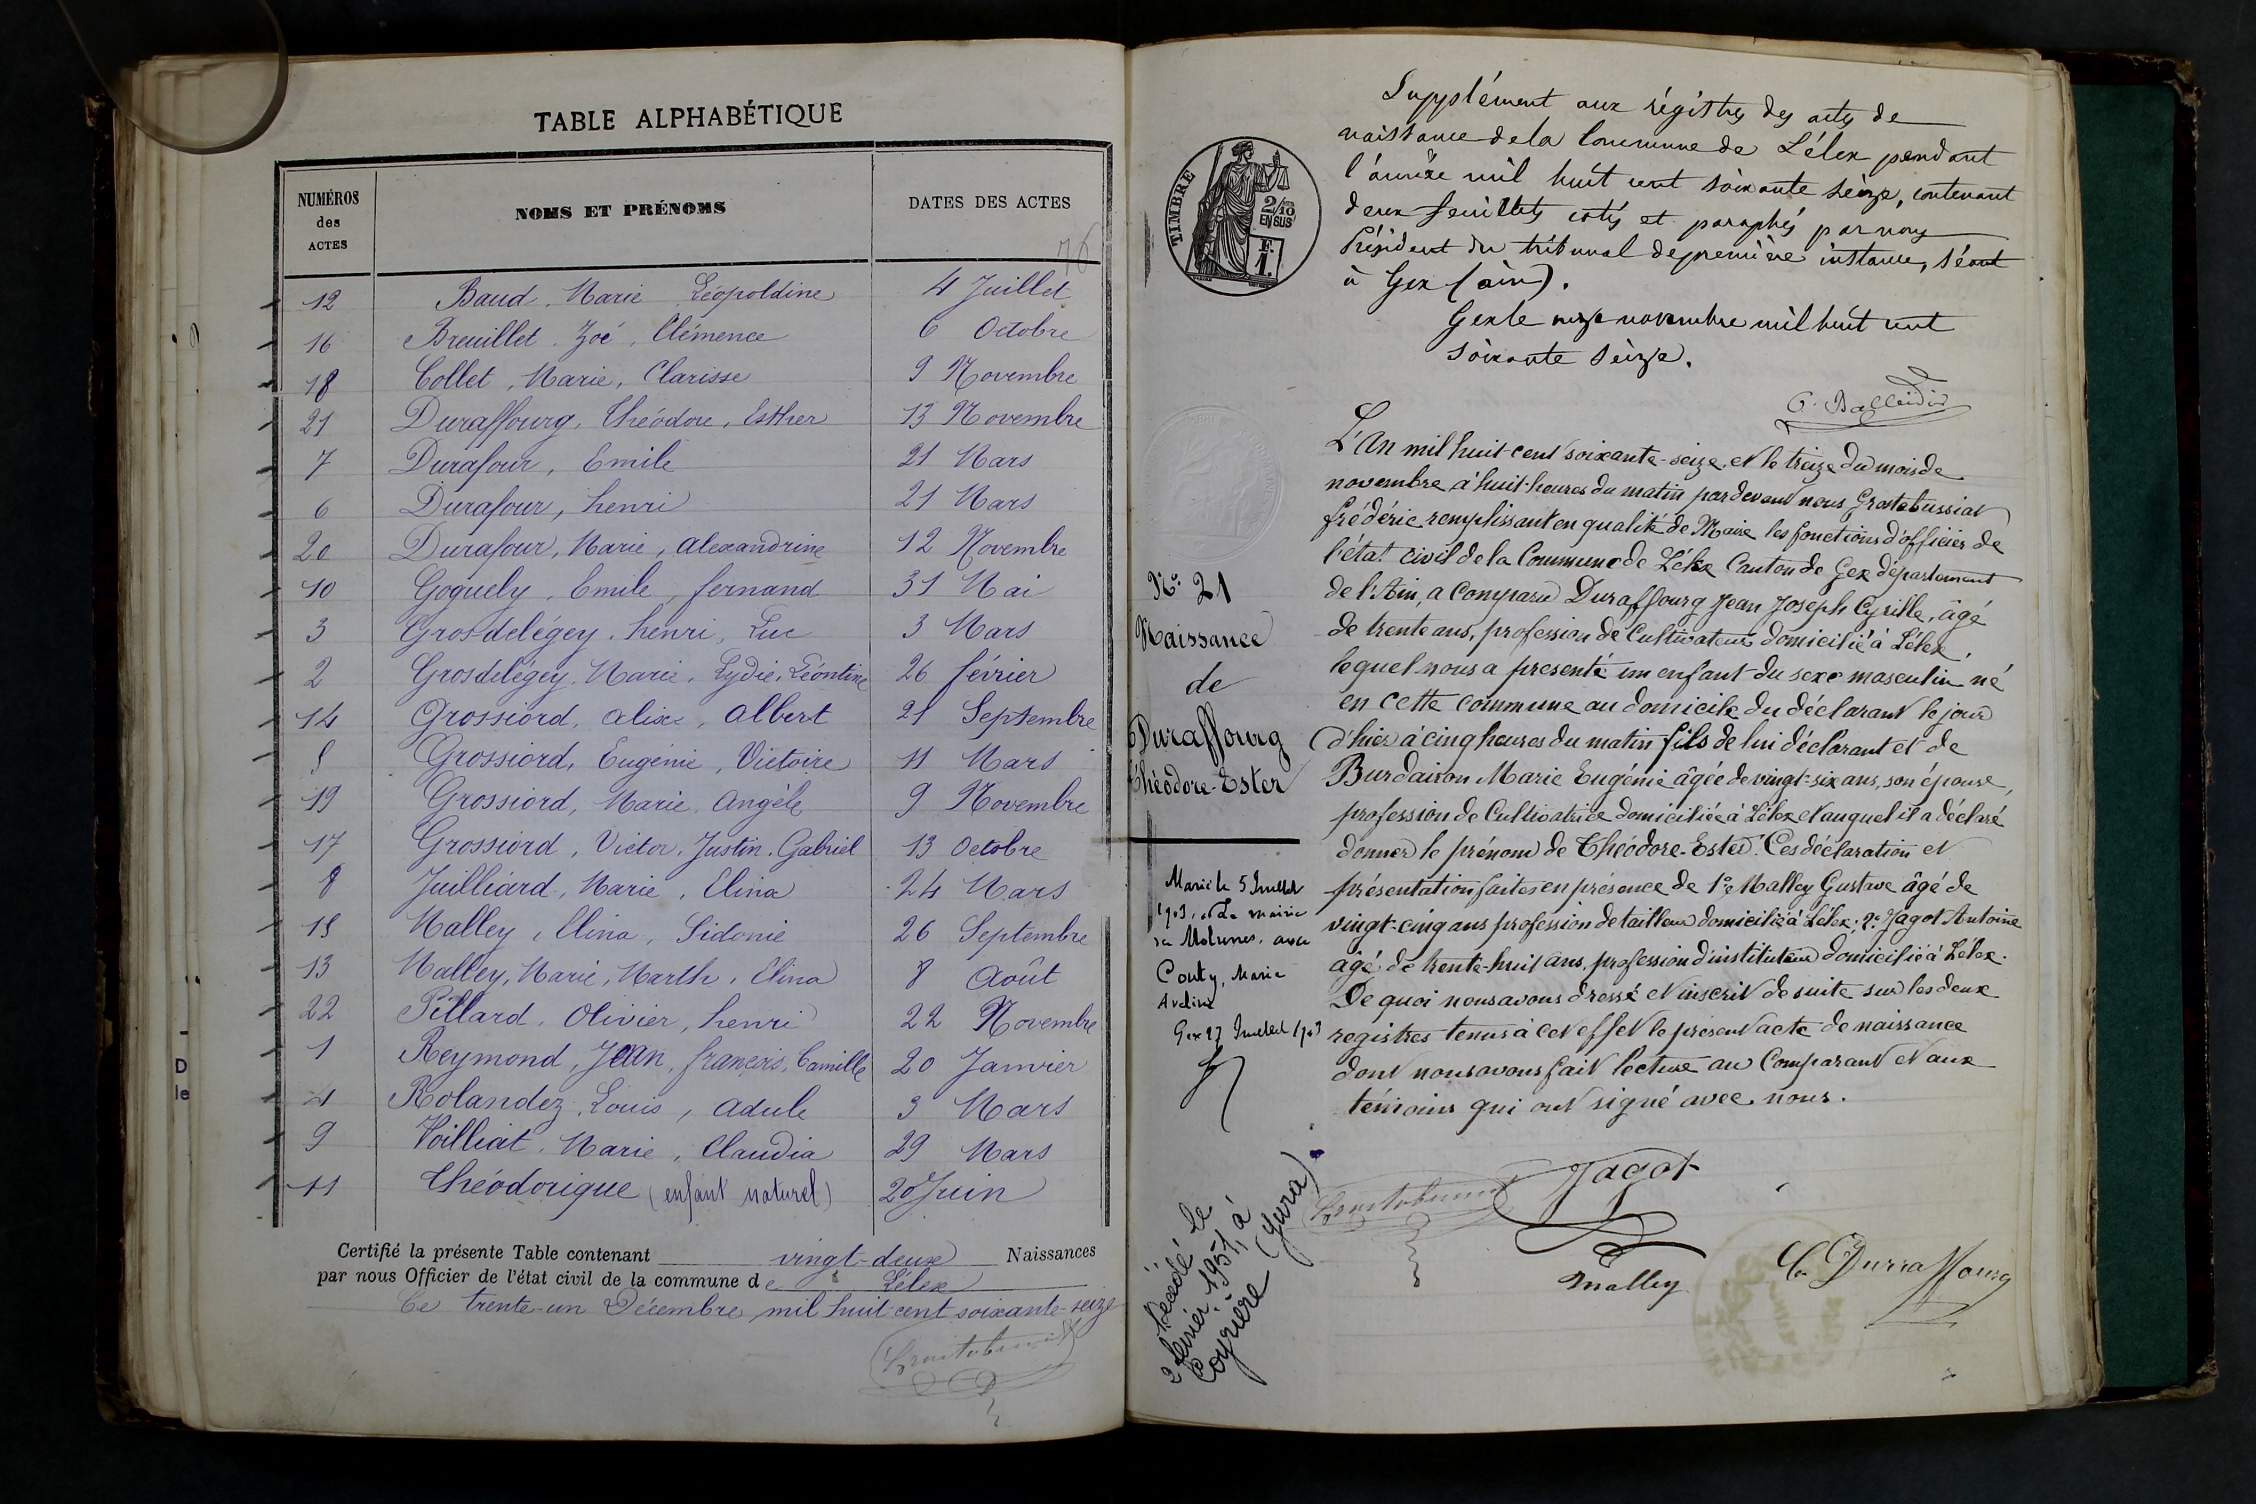 TABLE ALPHABÉTIQUE
NUMÉROS des ACTES
NOMS ET PRÉNOMS
DATES DES ACTES
76
12 Baud, Marie Léopoldine 4 Juillet
16 Breuillet, Zoé, Clémence 6 Octobre
18 Collet, Marie, Clarisse 9 Novembre
21 Duraffourg, Théodore, Esther 13 Novembre
7 Durafour, Emile 21 Mars
6 Durafour, henri 21 Mars
20 Durafour, Marie, alexandrine 12 Novembre
10 Goguely, Emile, fernand 31 Mai
3 Grosdelégey, henri, Luc 3 Mars
2 Grosdelégey, Marie, Lydie, Léontine 26 février
14 Grossiord, alix, albert 21 Septembre
5 Grossiord, Eugénie, Victoire 11 Mars
19 Grossiord, Marie, angèle 9 Novembre
17 Grossiord, Victor, Justin, Gabriel 13 Octobre
8 Juilliard, Marie, Elina 24 Mars
15 Malley, Elina, Sidonie 26 Septembre
13 Malley, Marie, Marth, Elina 8 Août
22 Pillard, Olivier, henri 22 Novembre
1 Reymond, Jean, françois, Camille 20 Janvier
4 Rolandez, Louis, adule 3 Mars
9 Voilliat, Marie, Claudia 29 Mars
11 Théodorique (enfant naturel) 20 Juin
Certifié la présente Table contenant vingt-deux Naissances
par nous Officier de l'état civil de la commune de Lélex
Ce trente-un Décembre mil huit cent soixante-seize
D
le
TIMBRE
2/10
EN SUS
F.
1.
Supplément aux régistres des actes de
naissance de la Commune de Lélex pendant
l'année mil huit cent soixante seize, contenant
deux feuillets cotés et paraphés par nous
Président du tribunal de première instance, séant
à Gex (ain).
Gex le onze novembre mil huit cent
soixante seize.
L'An mil huit cent soixante-seize et le treize du mois de
novembre à huit heures du matin par devant nous Grostabussiat
frédéric remplissant en qualité de Maire les fonctions d'officier de
l'état civil de la Commune de Lélex Canton de Gex département
de l'Ain, a Comparu Duraffourg Jean Joseph Cyrille, âgé
de trente ans, profession de Cultivateur domicilié à Lélex,
lequel nous a presenté un enfant du sexe masculin né
en cette commune au domicile du déclarant le jour
d'hier à cinq heures du matin fils de lui déclarant et de
Burdairon Marie Eugénie âgée de vingt-six ans, son épouse,
profession de Cultivatrice domiciliée à Lélex et auquel il a déclaré
donner le prénom de Théodore-Ester. Ces déclaration et
présentation faites en présence de 1° Malley Gustave âgé de
vingt-cinq ans profession de tailleur domicilié à Lélex; 2° Jagot Antoine
âgé de trente-huit ans, profession d'instituteur domicilié à Lélex.
De quoi nous avons dressé et inscrit de suite sur les deux
registres tenus à cet effet le présent acte de naissance
dont nous avons fait lecture au Comparant et aux
témoins qui ont signé avec nous.
Jagot
Malley
C. Durraffourg
N° 21
Naissance
de
Duraffourg
Théodore-Ester
Marié le 5 Juillet
1903, à la mairie
des Molunes, avec
Marie
Gex 27 Juillet 1903
Décédé le
2 février 1951, à
Coyrière (Jura)